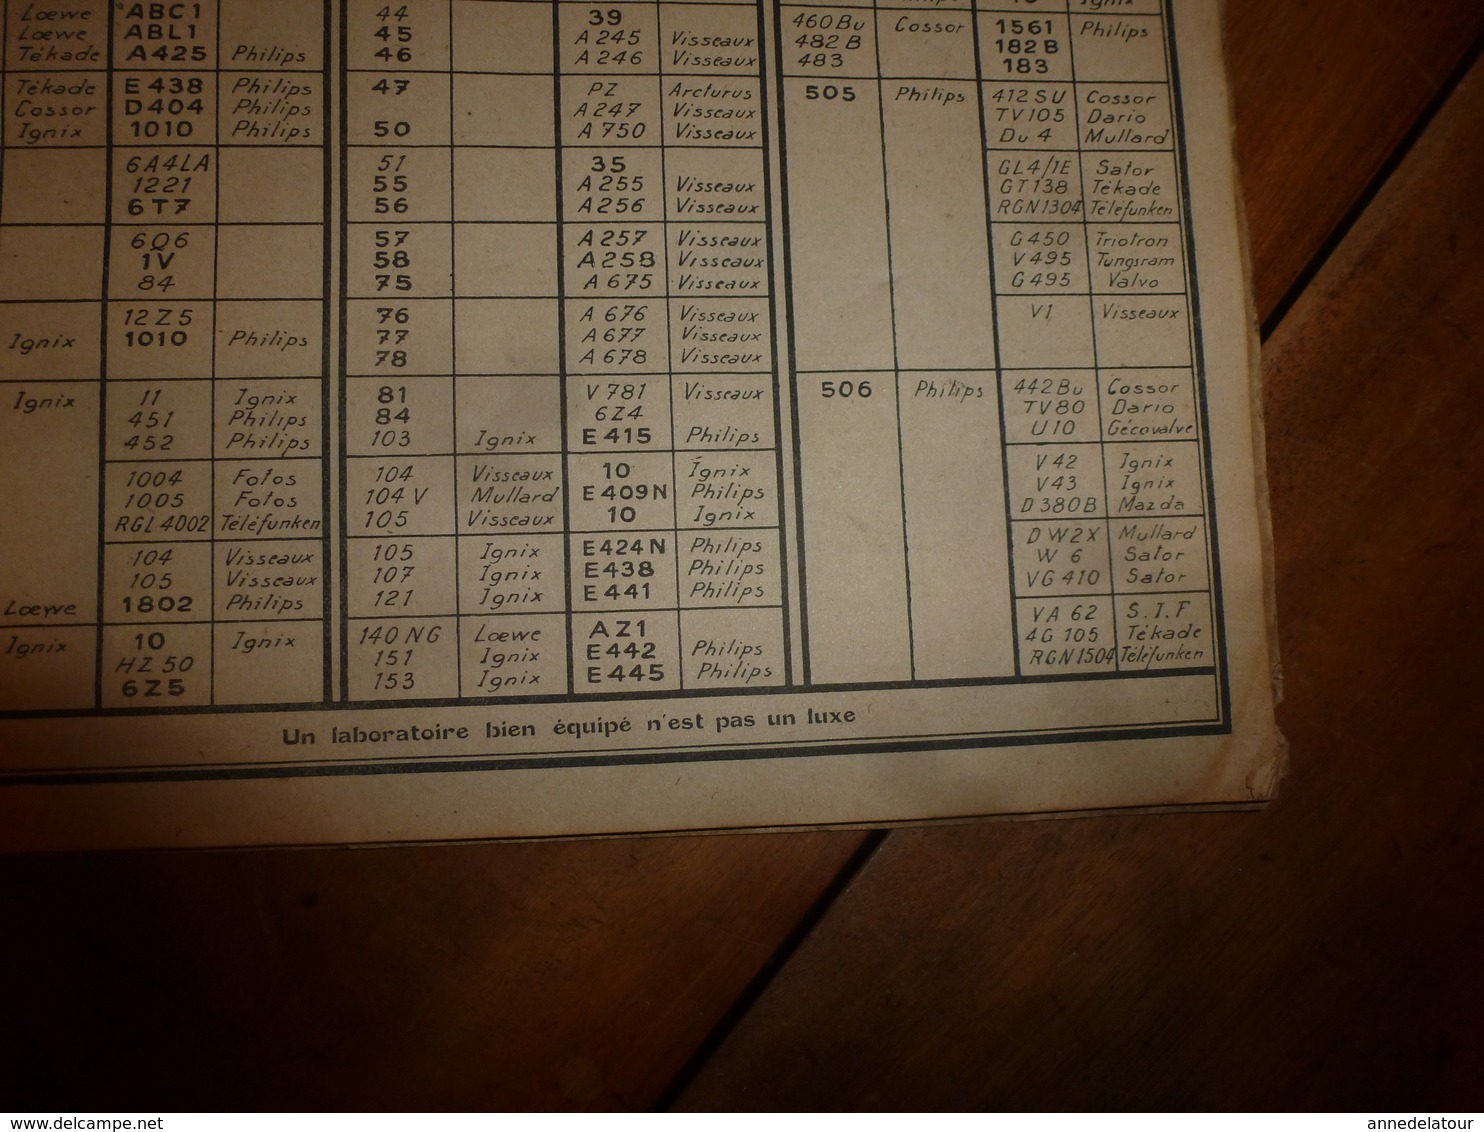 Loewe ABC1
Loewe ABL1
Tékade A425 Philips
Tékade E438 Philips
Cossor D404 Philips
Ignix 1010 Philips
6A4LA
1221
6T7
6Q6
1V
84
12Z5
Ignix 1010 Philips
Ignix 11 Ignix
451 Philips
452 Philips
1004 Fotos
1005 Fotos
RGL4002 Téléfunken
104 Visseaux
105 Visseaux
Loewe 1802 Philips
Ignix 10 Ignix
HZ50
6Z5
44 39
45 A245 Visseaux
46 A246 Visseaux
47 PZ Arcturus
A247 Visseaux
50 A750 Visseaux
51 35
55 A255 Visseaux
56 A256 Visseaux
57 A257 Visseaux
58 A258 Visseaux
75 A675 Visseaux
76 A676 Visseaux
77 A677 Visseaux
78 A678 Visseaux
81 V781 Visseaux
84 6Z4
103 Ignix E415 Philips
104 Visseaux 10 Ignix
104V Mullard E409N Philips
105 Visseaux 10 Ignix
105 Ignix E424N Philips
107 Ignix E438 Philips
121 Ignix E441 Philips
140NG Loewe AZ1
151 Ignix E442 Philips
153 Ignix E445 Philips
Ignix
460Bu Cossor 1561 Philips
482B 182B
483 183
505 Philips 412SU Cossor
TV105 Dario
Du4 Mullard
GL4/1E Sator
GT138 Tékade
RGN1304 Téléfunken
G450 Triotron
V495 Tungsram
G495 Valvo
V1 Visseaux
506 Philips 442Bu Cossor
TV80 Dario
U10 Gécovalve
V42 Ignix
V43 Ignix
D380B Mazda
DW2X Mullard
W6 Sator
VG410 Sator
VA62 S.I.F
4G105 Tékade
RGN1504 Téléfunken
Un laboratoire bien équipé n'est pas un luxe
www.delcampe.net
annedelatour